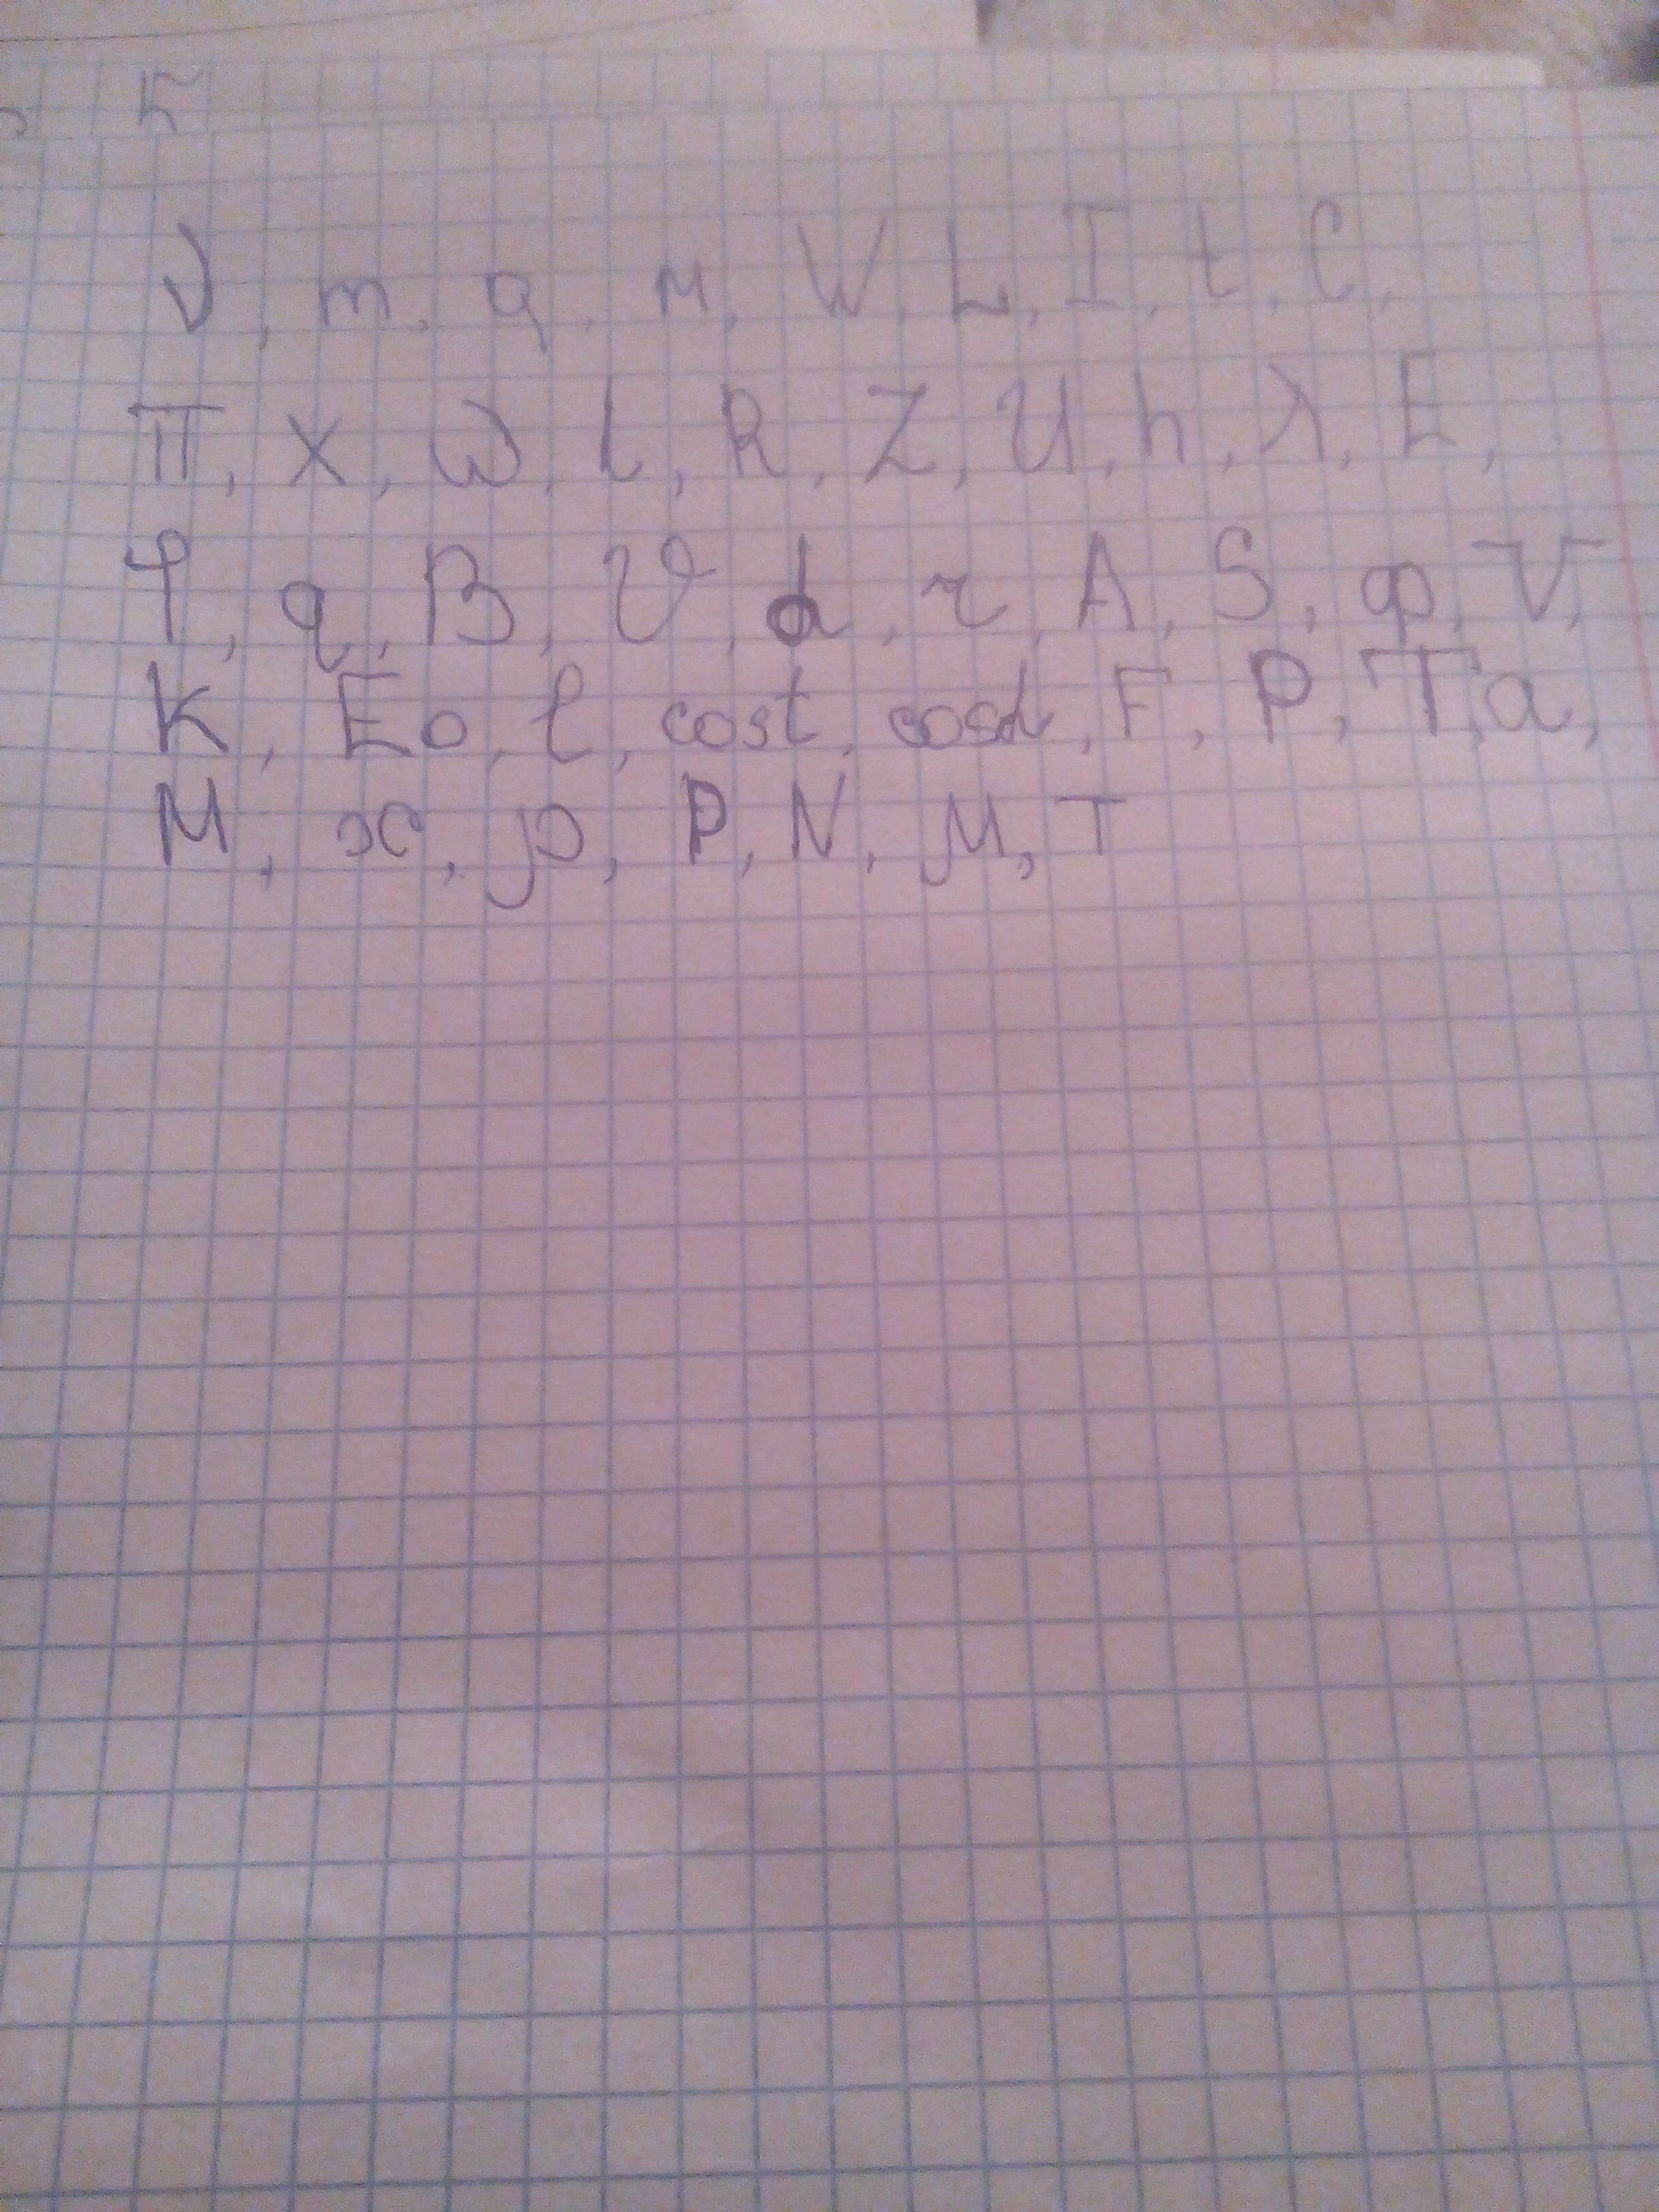 ν, m, q, м, W, L, I, t, C,
π, X, ω, l, R, Z, U, h, λ, E,
q, B, ϑ, d, r, A, S, φ, V,
K, Eo, l, cost, cosα, F, P, T, a,
M, x, ρ, P, N, μ, T